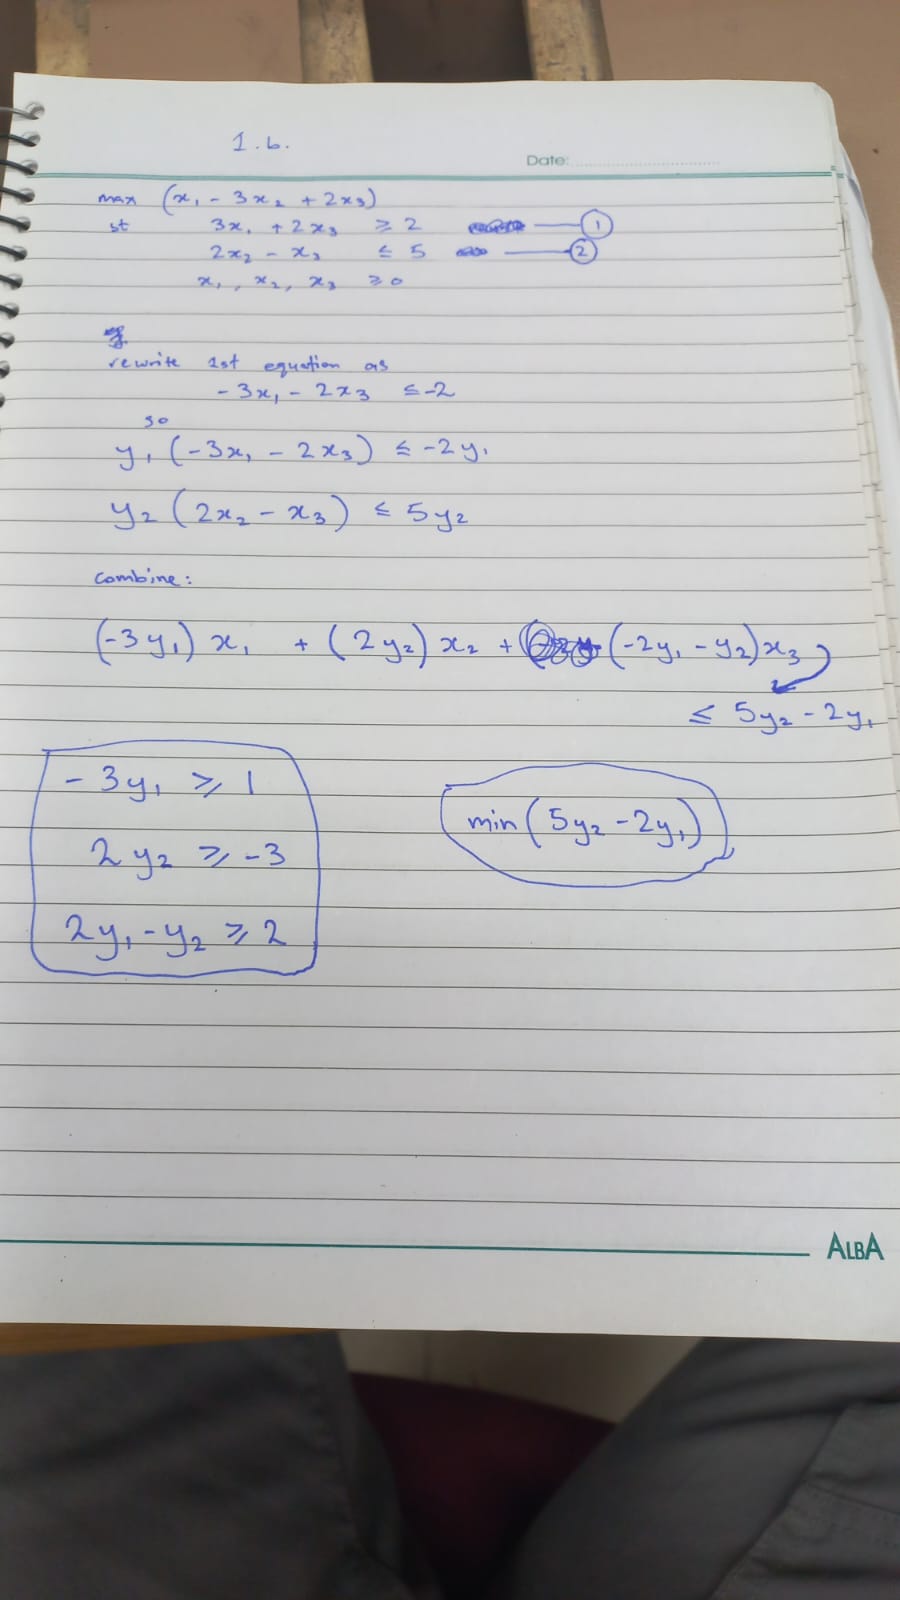 1.b.
Date:
max (x₁ - 3x₂ + 2x₃)
st 3x₁ + 2x₃ ≥ 2 ①
2x₂ - x₃ ≤ 5 ②
x₁, x₂, x₃ ≥ 0
rewrite 1st equation as
-3x₁ - 2x₃ ≤ -2
so
y₁(-3x₁ - 2x₃) ≤ -2y₁
y₂(2x₂ - x₃) ≤ 5y₂
combine:
(-3y₁)x₁ + (2y₂)x₂ + (-2y₁ - y₂)x₃
≤ 5y₂ - 2y₁
-3y₁ ≥ 1
2y₂ ≥ -3
2y₁ - y₂ ≥ 2
min(5y₂ - 2y₁)
ALBA